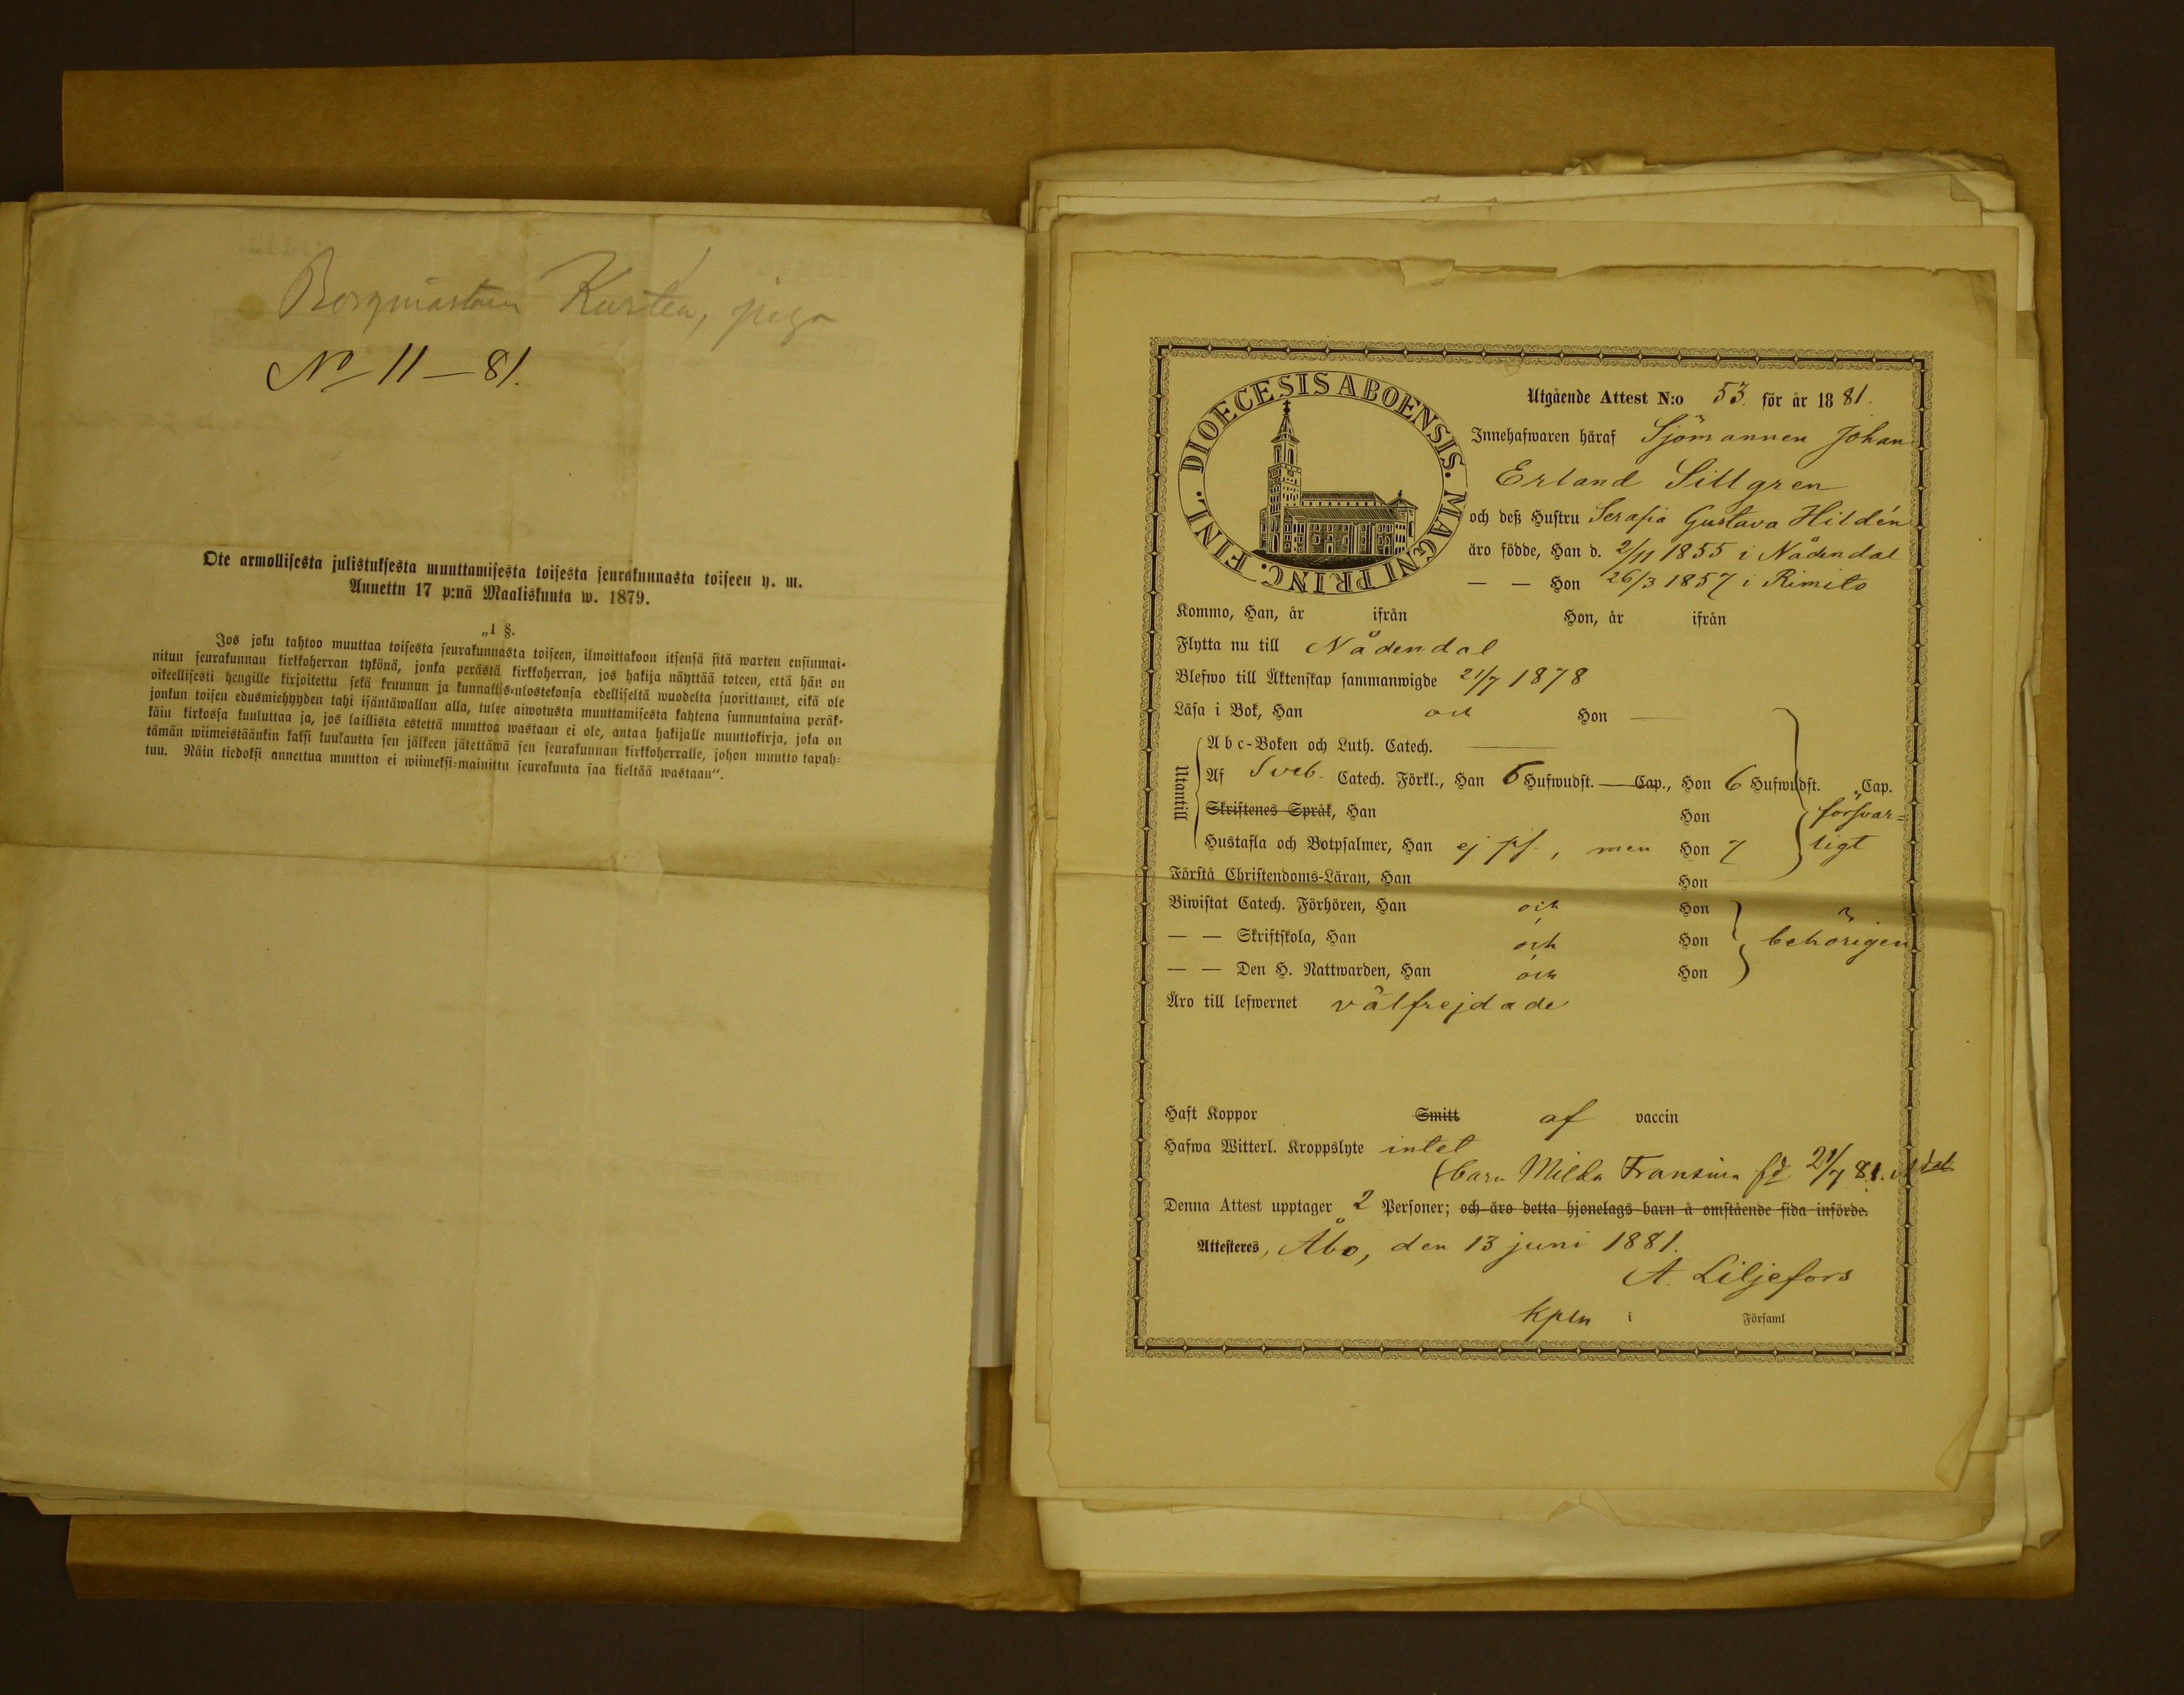 Borgmästare Kurtén, piga
No 11-81.
Ote armollisesta julistuksesta muuttamisesta toisesta seurakunnasta toiseen y. m.
Annettu 17 p:nä Maaliskuuta w. 1879.
„1 §.
Jos joku tahtoo muuttaa toisesta seurakunnasta toiseen, ilmoittakoon itsensä sitä warten ensinmai-
nitun seurakunnan kirkkoherran tykönä, jonka perästä kirkkoherran, jos hakija näyttää toteen, että hän on
oikeellisesti hengille kirjoitettu sekä kruunun ja kunnallis-ulostekonsa edelliseltä wuodelta suorittanut, eikä ole
jonkun toisen edusmiehyyden tahi isäntäwallan alla, tulee aiwotusta muuttamisesta kahtena sunnuntaina peräk-
käin kirkossa kuuluttaa ja, jos laillista estettä muuttoa wastaan ei ole, antaa hakijalle muuttokirja, joka on
tämän wiimeistäänkin kaksi kuukautta sen jälkeen jätettäwä sen seurakunnan kirkkoherralle, johon muutto tapah-
tuu. Näin tiedoksi annettua muuttoa ei wiimeksi-mainittu seurakunta saa kieltää wastaan".
DIOECESIS ABOENSIS. MAGNI PRINC. FINL.
Utgående Attest N:o 53. för år 1881.
Innehafwaren häraf Sjömannen Johan
Erland Sillgren
och deß Hustru Serafia Gustava Hildén
äro födde, Han d. 2/11 1855 i Nådendal
— — Hon 26/3 1857 i Rimito
Kommo, Han, år ifrån Hon, år ifrån
Flytta nu till Nådendal
Blefwo till Äktenskap sammanwigde 21/7 1878
Läsa i Bok, Han och Hon —
Utantill
A b c-Boken och Luth. Catech. —
Af Sveb. Catech. Förkl., Han 6 Hufwudst. — Cap., Hon 6 Hufwudst. „ Cap.
Skriftenes Språk, Han Hon försvar-
Hustafla och Botpsalmer, Han ej ps., men Hon 7 ligt
Förstå Christendoms-Läran, Han Hon
Biwistat Catech. Förhören, Han och Hon
— — Skriftskola, Han och Hon behörigen
— — Den H. Nattwarden, Han och Hon
Äro till lefwernet välfrejdade
Haft Koppor Smitt af vaccin
Hafwa Witterl. Kroppslyte intet
(barn Milda Fransina fd 21/7 81.
Denna Attest upptager 2 Personer; och äro detta hjonelags barn å omstående sida införde.
Attesteres, Åbo, den 13 juni 1881.
A. Liljefors
Kpln i Församl